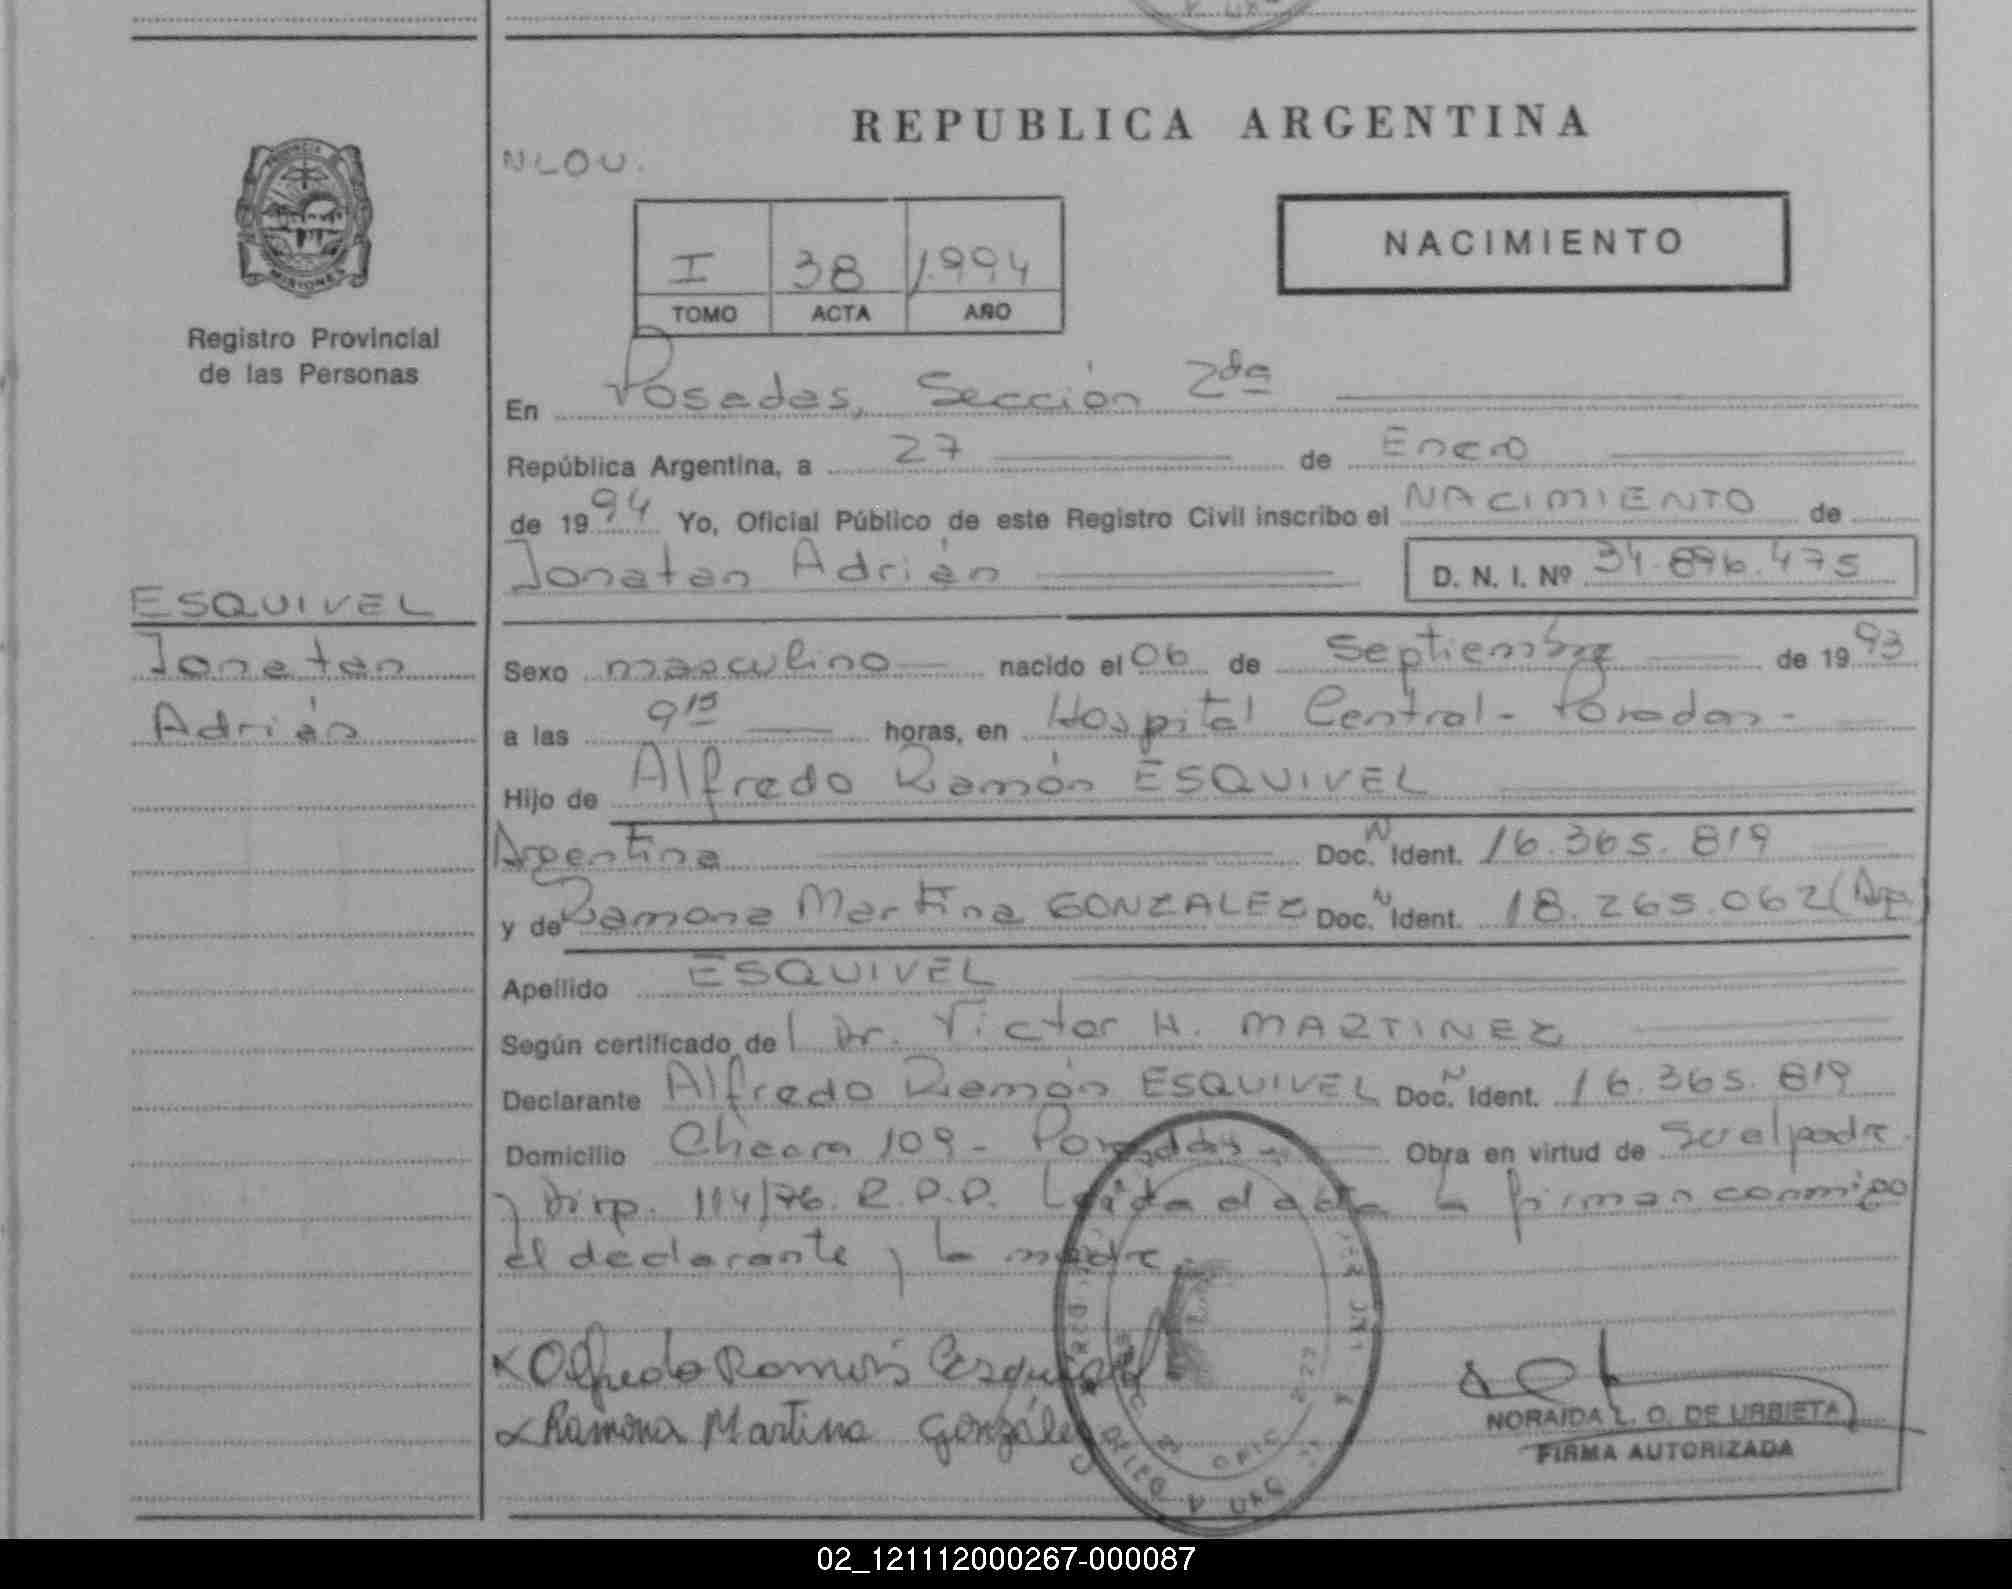 REPUBLICA ARGENTINA
NLOU.
NACIMIENTO
I 38 1.994
TOMO ACTA AÑO
PROVINCIA
MISIONES
Registro Provincial
de las Personas
En Posadas, Sección 2da
República Argentina, a 27 de Enero
de 1994 Yo, Oficial Público de este Registro Civil inscribo el NACIMIENTO de
Jonatan Adrián D. N. I. Nº 34.896.475
ESQUIVEL
Jonatan
Adrián
Sexo masculino nacido el 06 de Septiembre de 1993
a las 9 15 horas, en Hospital Central - Posadas -
Hijo de Alfredo Ramón ESQUIVEL
Argentina Doc. N Ident. 16.365.819
y de Ramona Martina GONZALEZ Doc. N Ident. 18.265.062 (Arg.
Apellido ESQUIVEL
Según certificado de l Dr. Victor H. MARTINEZ
Declarante Alfredo Ramón ESQUIVEL Doc. N Ident. 16.365.819
Domicilio Chacra 109 - Posadas - Obra en virtud de Ser el padre
y Disp. 114/76. R.P.P. Leída el acta la firman conmigo
el declarante y la madre.
Alfredo Ramón Esquivel
Ramona Martina González
NORAIDA L. O. DE URBIETA
FIRMA AUTORIZADA
02_121112000267-000087